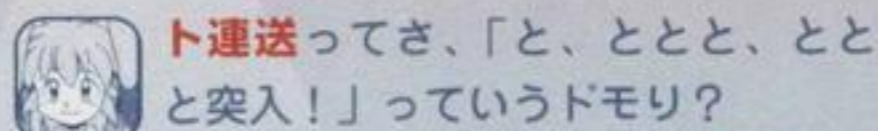 ト連送ってさ、「と、ととと、とと
と突入！」っていうドモり？